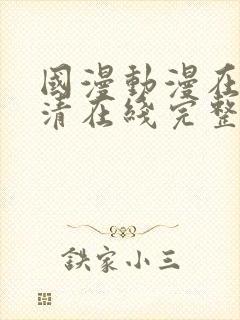 國漫動漫在
清在綫完整
鉄家小三